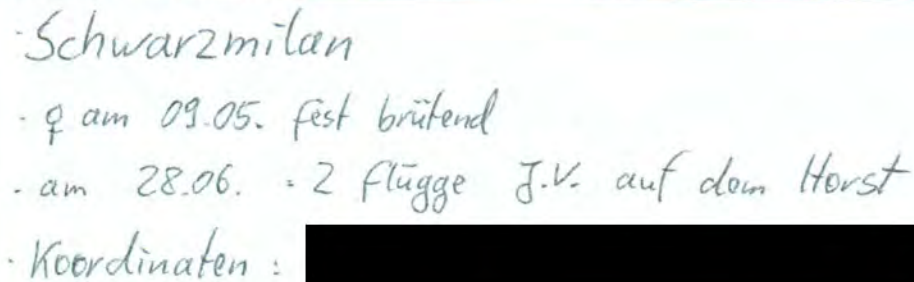 · Schwarzmilan
· ♀ am 09.05. fest brütend
· am 28.06. = 2 flügge J.V. auf dem Horst
· Koordinaten :